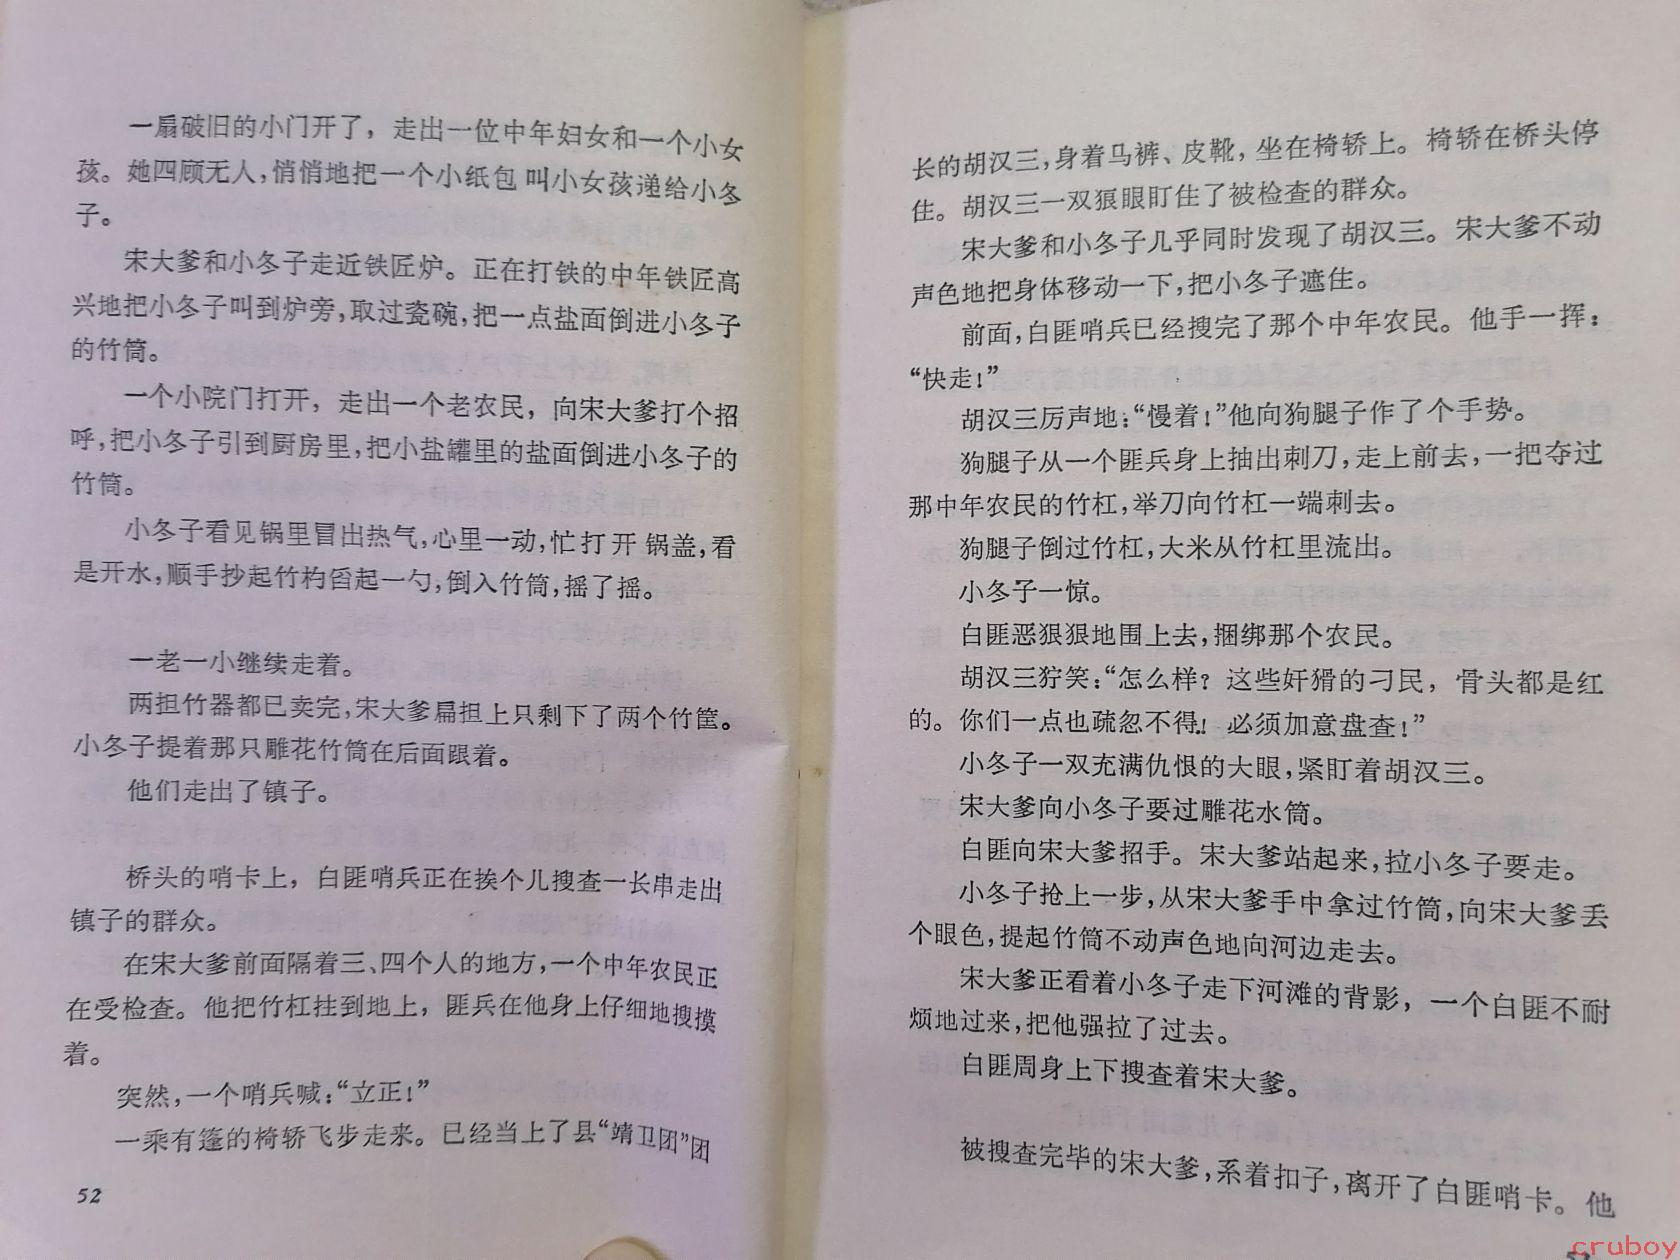 一扇破旧的小门开了，走出一位中年妇女和一个小女
孩。她四顾无人，悄悄地把一个小纸包叫小女孩递给小冬
子。
宋大爹和小冬子走近铁匠炉。正在打铁的中年铁匠高
兴地把小冬子叫到炉旁，取过瓷碗，把一点盐面倒进小冬子
的竹筒。
一个小院门打开，走出一个老农民，向宋大爹打个招
呼，把小冬子引到厨房里，把小盐罐里的盐面倒进小冬子的
竹筒。
小冬子看见锅里冒出热气，心里一动，忙打开锅盖，看
是开水，顺手抄起竹杓舀起一勺，倒入竹筒，摇了摇。
一老一小继续走着。
两担竹器都已卖完，宋大爹扁担上只剩下了两个竹筐。
小冬子提着那只雕花竹筒在后面跟着。
他们走出了镇子。
桥头的哨卡上，白匪哨兵正在挨个儿搜查一长串走出
镇子的群众。
在宋大爹前面隔着三、四个人的地方，一个中年农民正
在受检查。他把竹杠拄到地上，匪兵在他身上仔细地搜摸
着。
突然，一个哨兵喊：“立正！”
一乘有篷的椅轿飞步走来。已经当上了县“靖卫团”团
52
长的胡汉三，身着马裤、皮靴，坐在椅轿上。椅轿在桥头停
住。胡汉三一双狼眼盯住了被检查的群众。
宋大爹和小冬子几乎同时发现了胡汉三。宋大爹不动
声色地把身体移动一下，把小冬子遮住。
前面，白匪哨兵已经搜完了那个中年农民。他手一挥：
“快走！”
胡汉三厉声地：“慢着！”他向狗腿子作了个手势。
狗腿子从一个匪兵身上抽出刺刀，走上前去，一把夺过
那中年农民的竹杠，举刀向竹杠一端刺去。
狗腿子倒过竹杠，大米从竹杠里流出。
小冬子一惊。
白匪恶狠狠地围上去，捆绑那个农民。
胡汉三狞笑：“怎么样？这些奸猾的刁民，骨头都是红
的。你们一点也疏忽不得！必须加意盘查！”
小冬子一双充满仇恨的大眼，紧盯着胡汉三。
宋大爹向小冬子要过雕花水筒。
白匪向宋大爹招手。宋大爹站起来，拉小冬子要走。
小冬子抢上一步，从宋大爹手中拿过竹筒，向宋大爹丢
个眼色，提起竹筒不动声色地向河边走去。
宋大爹正看着小冬子走下河滩的背影，一个白匪不耐
烦地过来，把他强拉了过去。
白匪周身上下搜查着宋大爹。
被搜查完毕的宋大爹，系着扣子，离开了白匪哨卡。他
cruboy